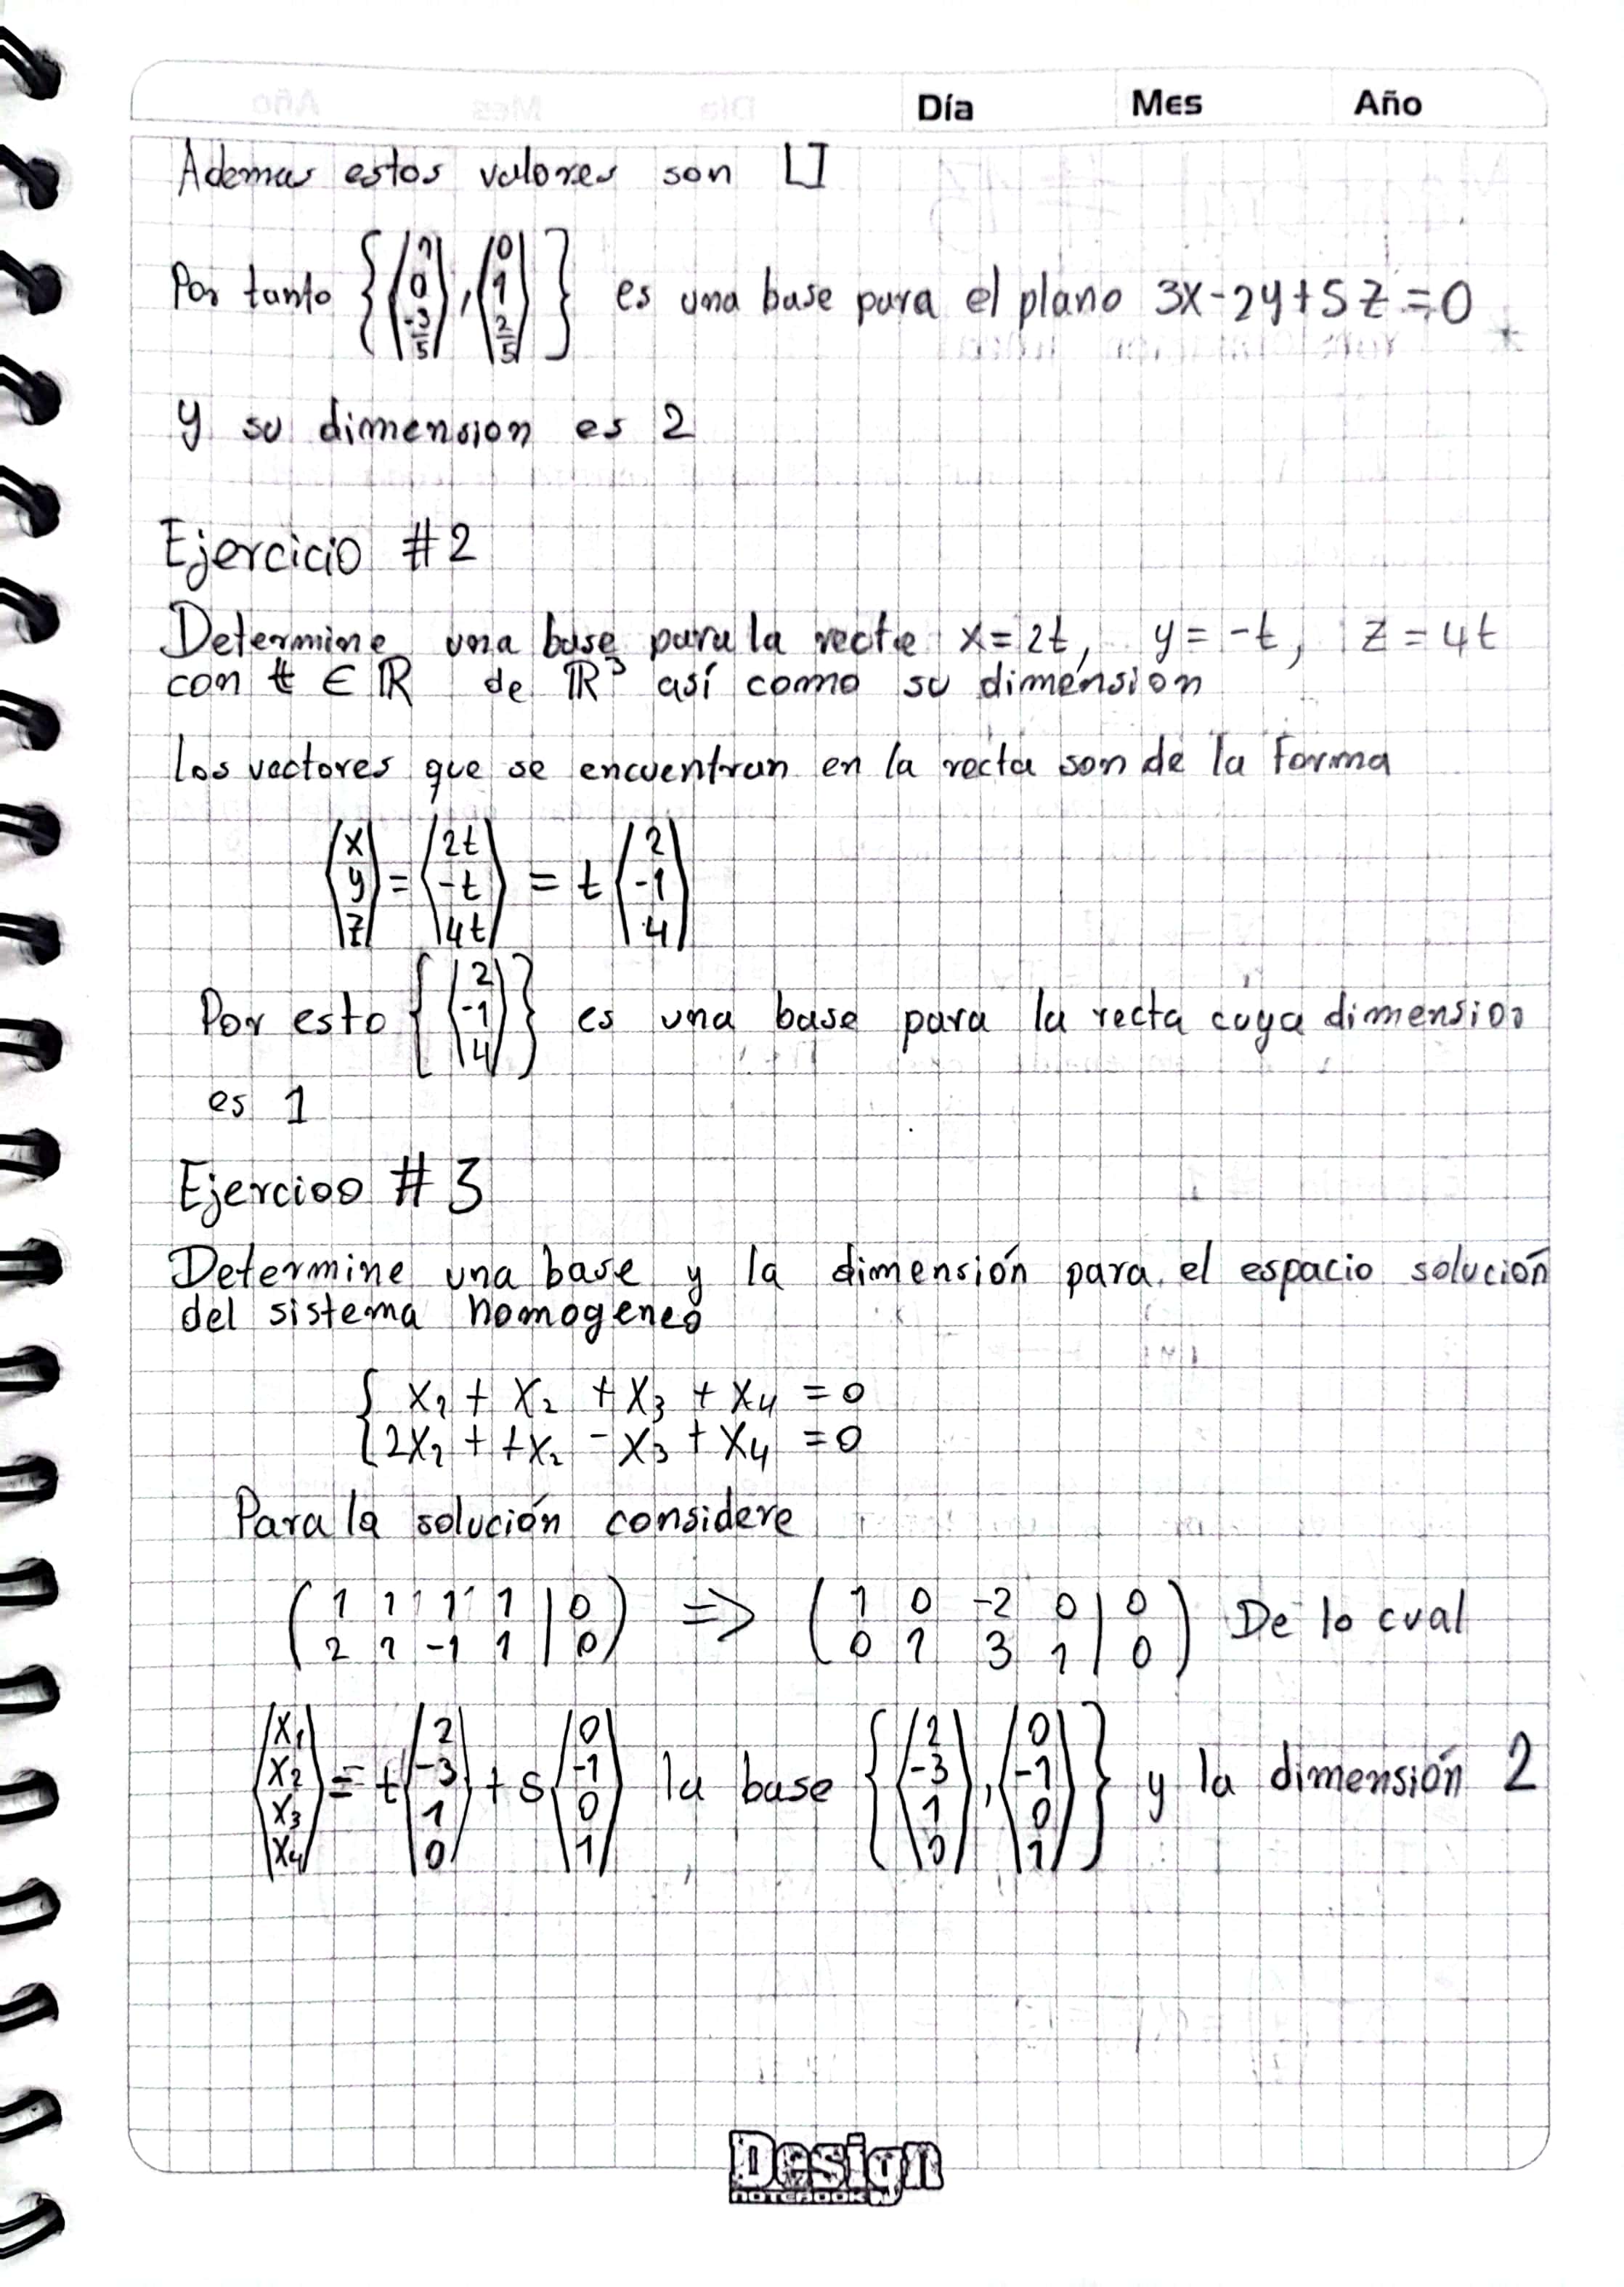 Día Mes Año
Ademas estos valores son LI
Por tanto {(1 0 -3/5), (0 1 2/5)} es una base para el plano 3x-2y+5z=0
y su dimension es 2
Ejercicio #2
Determine una base para la recta x=2t, y=-t, z=4t
con t ∈ ℝ de ℝ³ así como su dimensión
los vectores que se encuentran en la recta son de la forma
(x y z) = (2t -t 4t) = t (2 -1 4)
Por esto {(2 -1 4)} es una base para la recta cuya dimension
es 1
Ejercicio #3
Determine una base y la dimensión para el espacio solución
del sistema homogeneo
{ x₁ + x₂ + x₃ + x₄ = 0
2x₁ + +x₂ - x₃ + x₄ = 0
Para la solución considere
(1 1 1 1 | 0
2 1 -1 1 | 0) => (1 0 -2 0 | 0
0 1 3 1 | 0) De lo cual
(x₁ x₂ x₃ x₄) = t (2 -3 1 0) + s (0 -1 0 1) la base {(2 -3 1 0), (0 -1 0 1)} y la dimensión 2
Design
NOTEBOOK